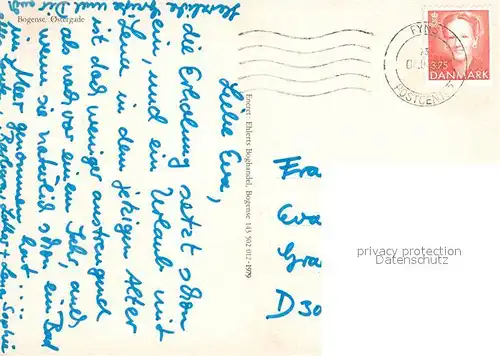 Bogense. Østergade
Liebe Eva,
die Erholung setzt schon
ein, und ein Urlaub mit
Lena in dem jetzigen Alter
ist doch weniger anstrengend
als noch vor einem Jahr, auch
wenn sie natürlich schon ein Bad
im Meer genommen hat....
Herzliche Grüße und Dir auch
Barbara, Lothar + Lena Sophie
Eneret: Ehlerts Boghandel, Bogense 145 502 012 - 1979
FYNS
POSTCENTER
3.75
DANMARK
Frau
Eva
D 30
privacy protection
Datenschutz